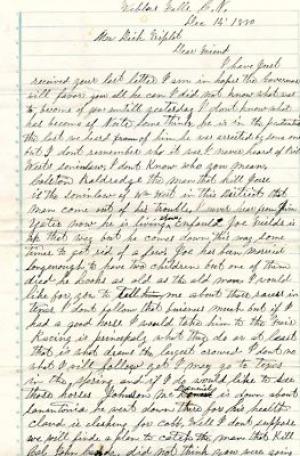 Dec 14' 1880
Mr Dick
Dear friend
I have just
received your last letter I am in hope the Governor
will favor you all he can I did not know what was
to become of you untill yesterday I don't know what
has become of Nate Jones think he is in the penitentiary
the last we heard from of him he was arrested by some one
out I don't remember who it was I never heard of
Wests soninlaw, I don't Know who you mean,
Baldredge the man that kill Jesse
is the soninlaw of Wm West in this District that
man came out of his trouble, I never hear from Jim
Yates now he is living Joe Fields is
up that way but he comes down this way some
times to get rid of a few Joe has been married
long enough to have two children but one of them
died he looks as old as the old man, I would
like for you to tell me about those races in
texas I don't follow that business much but if I
had a good horse I would take him to the Fair
Racing is principaly what they do or at least
that is what draws the largest crowd I dont no
what I will follow yet I may go to texas
in the spring and if I do would like to see
those horses Johnson Mc Daniel is down about
he went down there for his health
cloud is clerking for Cobb, Well I dont suppose
we will find a plan to catch the man that kill
John did not think you were going